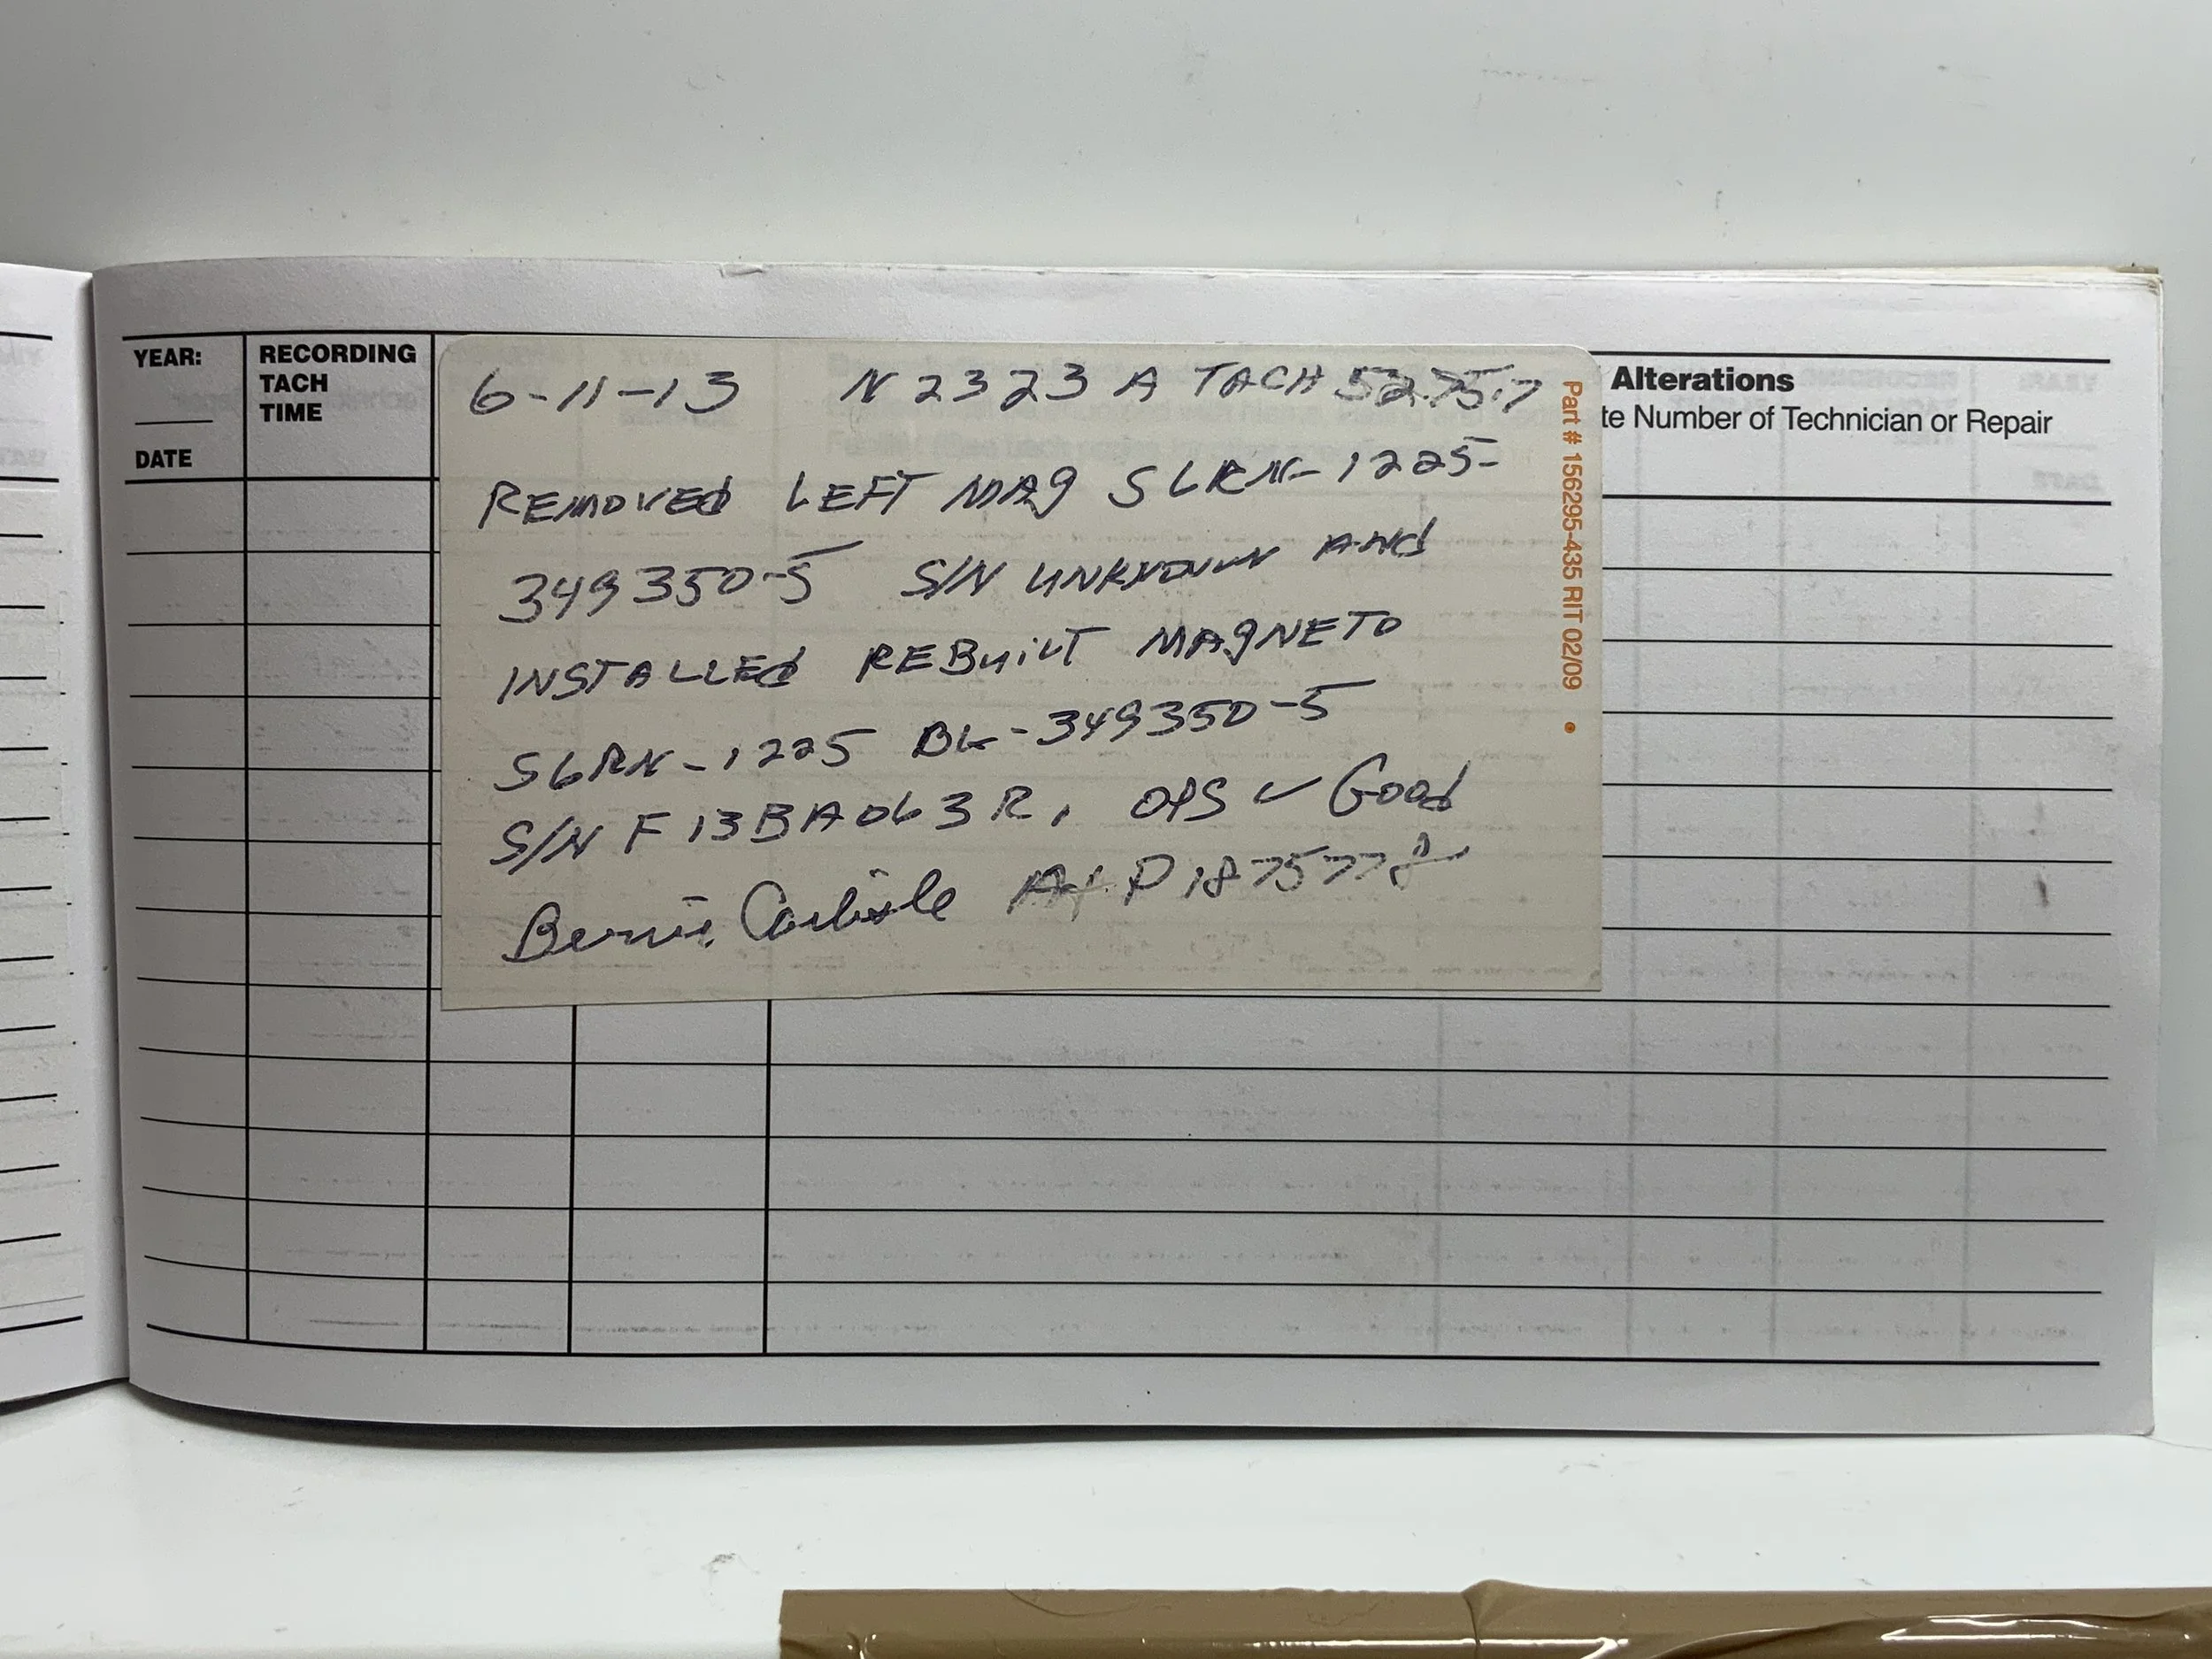 YEAR:
DATE
RECORDING
TACH
TIME
6-11-13 N2323A TACH 5275.7
REMOVED LEFT MAG S6RN-1225
349350-5 S/N UNKNOWN AND
INSTALLED REBUILT MAGNETO
S6RN-1225 BL-349350-5
S/N F13BA063R, OPS ✓ Good
Bernie Carlisle A&P 1875778
Part # 156295-435 RIT 02/09
Alterations
te Number of Technician or Repair